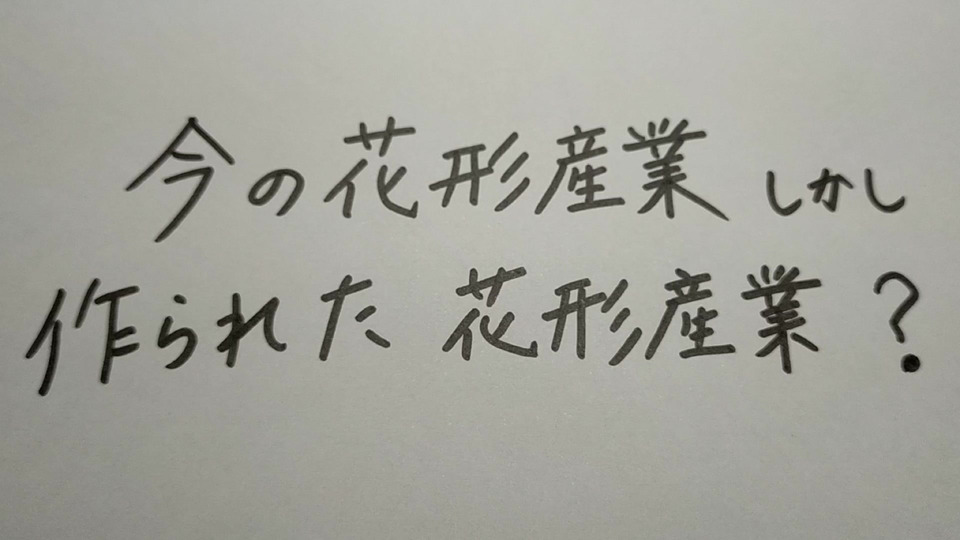 今の花形産業しかし
作られた花形産業?